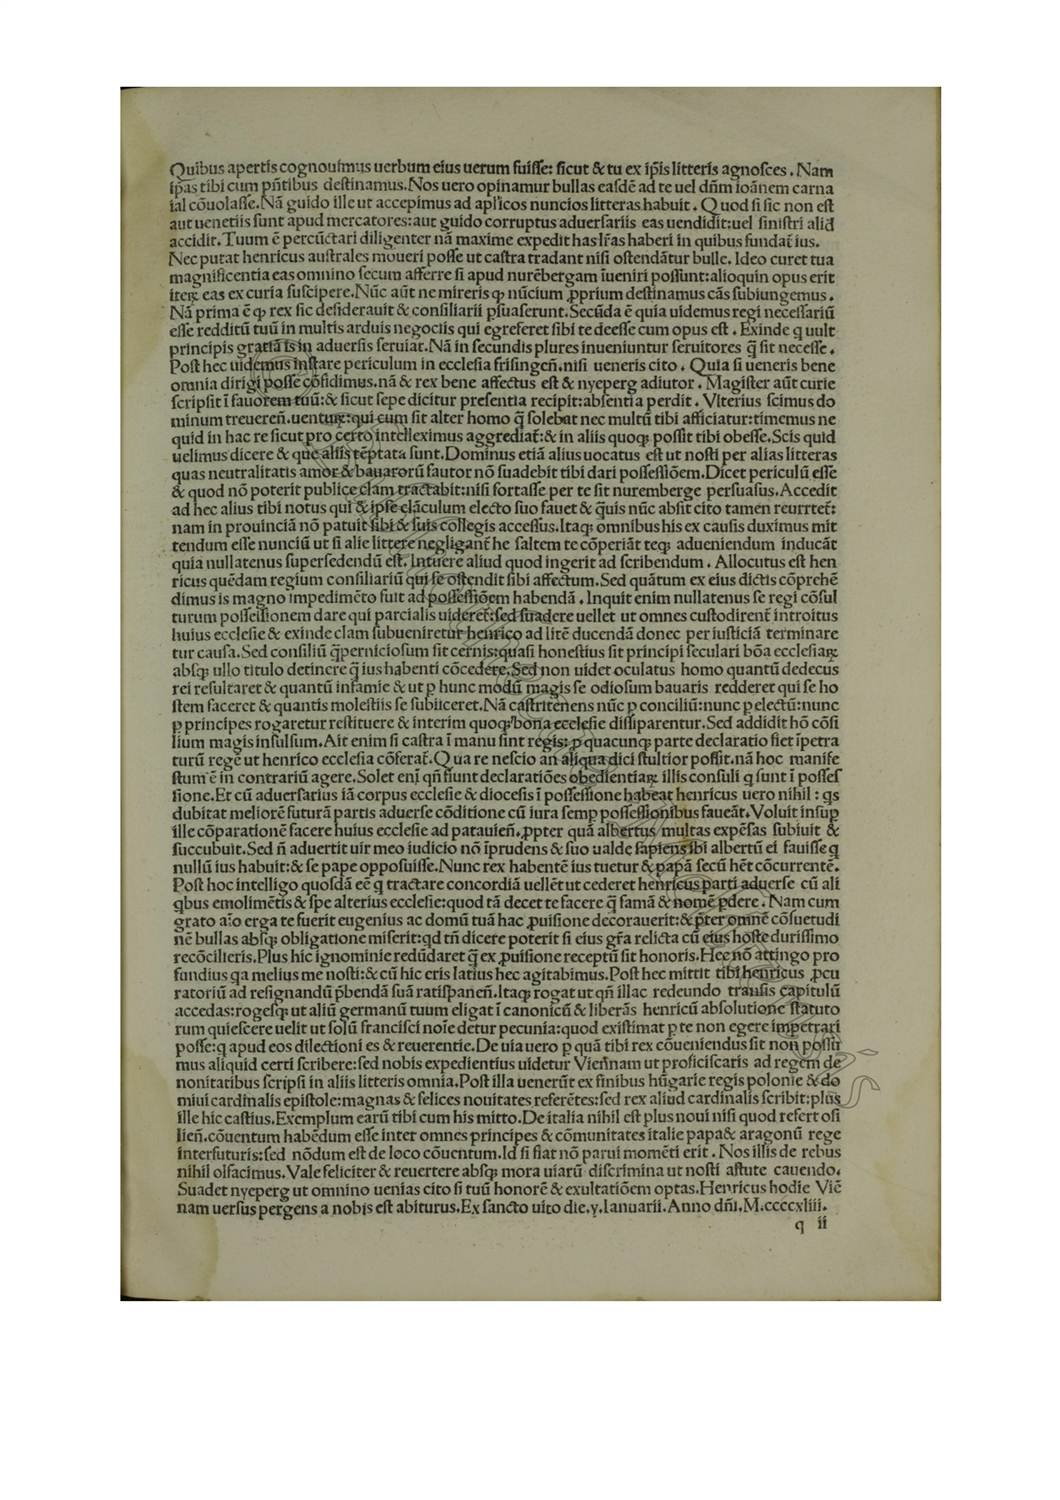 Quibus apertis cognouimus uerbum eius uerum fuisse: sicut & tu ex ip̄is litteris agnosces. Nam
ip̄as tibi cum pn̄tibus destinamus. Nos uero opinamur bullas easdē ad te uel dn̄m ioānem carua
ial cōuolasse. Nā guido ille ut accepimus ad apl'icos nuncios litteras habuit. Quod si sic non est
aut uenetiis sunt apud mercatores: aut guido corruptus aduersariis eas uendidit: uel sinistri alid
accidit. Tuum ē percūctari diligenter nā maxime expedit has lr̄as haberi in quibus fundat̄ ius.
Nec putat henricus australes moueri posse ut castra tradant nisi ostendātur bulle. Ideo curet tua
magnificentia eas omnino secum afferre si apud nurēbergam īueniri possunt: alioquin opus erit
iteꝝ eas ex curia suscipere. Nūc aūt ne mireris qꝫ nūcium ꝓprium destinamus cās subiungemus.
Nā prima ē qꝫ rex sic desiderauit & consiliarii ꝑsuaserunt. Secūda ē quia uidemus regi necessariū
esse redditū tuū in multis arduis negociis qui egreferet sibi te deesse cum opus est. Exinde q uult
principis gratiā is in aduersis seruiat. Nā in secundis plures inueniuntur seruitores q̄ sit necesse.
Post hec uidemus instare periculum in ecclesia frisingen̄. nisi ueneris cito. Quia si ueneris bene
omnia dirigi posse cōfidimus. nā & rex bene affectus est & nyeperg adiutor. Magister aūt curie
scripsit ī fauorem tuū: & sicut sepe dicitur presentia recipit: absentia perdit. Vlterius scimus do
minum treueren̄. uentuꝝ: qui cum sit alter homo q̄ solebat nec multū tibi afficiatur: timemus ne
quid in hac re sicut pro certo intelleximus aggrediat̄: & in aliis quoqꝫ possit tibi obesse. Scis quid
uelimus dicere & que aliis tēptata sunt. Dominus etiā alius uocatus est ut nosti per alias litteras
quas neutralitatis amor & bauarorū fautor nō suadebit tibi dari possessiōem. Dicet periculū esse
& quod nō poterit publice clam tractabit: nisi fortasse per te sit nuremberge persuasus. Accedit
ad hec alius tibi notus qui & ipse clāculum electo suo fauet & q̄uis nūc absit cito tamen reurrtet̄:
nam in prouinciā nō patuit sibi & suis collegis accessus. Itaqꝫ omnibus his ex causis duximus mit
tendum esse nunciū ut si alie littere negligant̄ he saltem te cōperiāt teqꝫ adueniendum inducāt
quia nullatenus supersedendū est. Intuere aliud quod ingerit ad scribendum. Allocutus est hen
ricus quēdam regium consiliariū qui se ostendit sibi affectum. Sed quātum ex eius dictis cōprehē
dimus is magno impedimēto fuit ad possessiōem habendā. Inquit enim nullatenus se regi cōsul
turum possessionem dare qui parcialis uideret̄: sed suadere uellet ut omnes custodirent̄ introitus
huius ecclesie & exinde clam subueniretur henrico ad litē ducendā donec per iusticiā terminare
tur causa. Sed consiliū q̄perniciosum sit cernis: quasi honestius sit principi seculari bōa ecclesiaꝝ
absqꝫ ullo titulo detinere q̄ ius habenti cōcedere. Sed non uidet oculatus homo quantū dedecus
rei resultaret & quantū infamie & ut ꝑ hunc modū magis se odiosum bauaris redderet qui se ho
stem faceret & quantis molestiis se subiiceret. Nā castritenens nūc ꝑ conciliū: nunc ꝑ electū: nunc
ꝑ principes rogaretur restituere & interim quoqꝫ bona ecclesie dissiparentur. Sed addidit hō cōsi
lium magis insulsum. Ait enim si castra ī manu sint regis: ꝑ quacunqꝫ parte declaratio fiet īpetra
turū regē ut henrico ecclesia cōferat̄. Qua re nescio an aliqua dici stultior possit. nā hoc manife
stum ē in contrariū agere. Solet enī qn̄ fiunt declaratiōes obedientiaꝝ illis consuli q sunt ī posses
sione. Et cū aduersarius iā corpus ecclesie & diocesis ī possessione habeat henricus uero nihil: qs
dubitat meliorē futurā partis aduerse cōditione cū iura semꝑ possessionibus faueāt. Voluit insuꝑ
ille cōparationē facere huius ecclesie ad patauien̄. ꝓpter quā albertus multas expēsas subiuit &
succubuit. Sed n̄ aduertit uir meo iudicio nō īprudens & suo ualde sapiens ibi albertū ei fauisse q
nullū ius habuit: & se pape opposuisse. Nunc rex habentē ius tuetur & papā secū hēt cōcurrentē.
Post hoc intelligo quosdā eē q tractare concordiā uellēt ut cederet henricus parti aduerse cū ali
qbus emolimētis & spe alterius ecclesie: quod tā decet te facere q̄ famā & nomē ꝑdere. Nam cum
grato aīo erga te fuerit eugenius ac domū tuā hac ꝓuisione decorauerit: & p̄ter omnē cōsuetudi
nē bullas absqꝫ obligatione miserit: qd tn̄ dicere poterit si eius gr̄a relicta cū eius hoste durissimo
recōcilieris. Plus hic ignominie redūdaret q̄ ex ꝓuisione receptū sit honoris. Hec nō attingo pro
fundius qa melius me nosti: & cū hic eris latius hec agitabimus. Post hec mittit tibi henricus ꝓcu
ratoriū ad resignandū p̄bendā suā ratispanen̄. Itaqꝫ rogat ut qn̄ illac redeundo transis capitulū
accedas: rogesqꝫ ut aliū germanū tuum eligat ī canonicū & liberās henricū absolutione statuto
rum quiescere uelit ut solū francisci noīe detur pecunia: quod existimat ꝑ te non egere impetrari
posse: q apud eos dilectioni es & reuerentie. De uia uero ꝑ quā tibi rex cōueniendus sit non possu
mus aliquid certi scribere: sed nobis expedientius uidetur Vien̄nam ut proficiscaris ad regem de
nonitatibus scripsi in aliis litteris omnia. Post illa uenerūt ex finibus hūgarie regis polonie & do
miui cardinalis epistole: magnas & felices nouitates referētes: sed rex aliud cardinalis scribit: plus
ille hic castius. Exemplum earū tibi cum his mitto. De italia nihil est plus noui nisi quod refert osi
lien̄. cōuentum habēdum esse inter omnes principes & cōmunitates italie papa & aragonū rege
interfuturis: sed nōdum est de loco cōuentum. Id si fiat nō parui momēti erit. Nos illis de rebus
nihil olfacimus. Vale feliciter & reuertere absqꝫ mora uiarū discrimina ut nosti astute cauendo.
Suadet nyeperg ut omnino uenias cito si tuū honorē & exultatiōem optas. Henricus hodie Viē
nam uersus pergens a nobis est abiturus. Ex sancto uito die. y. Ianuarii. Anno dn̄i. M.ccccxliii.
q ii